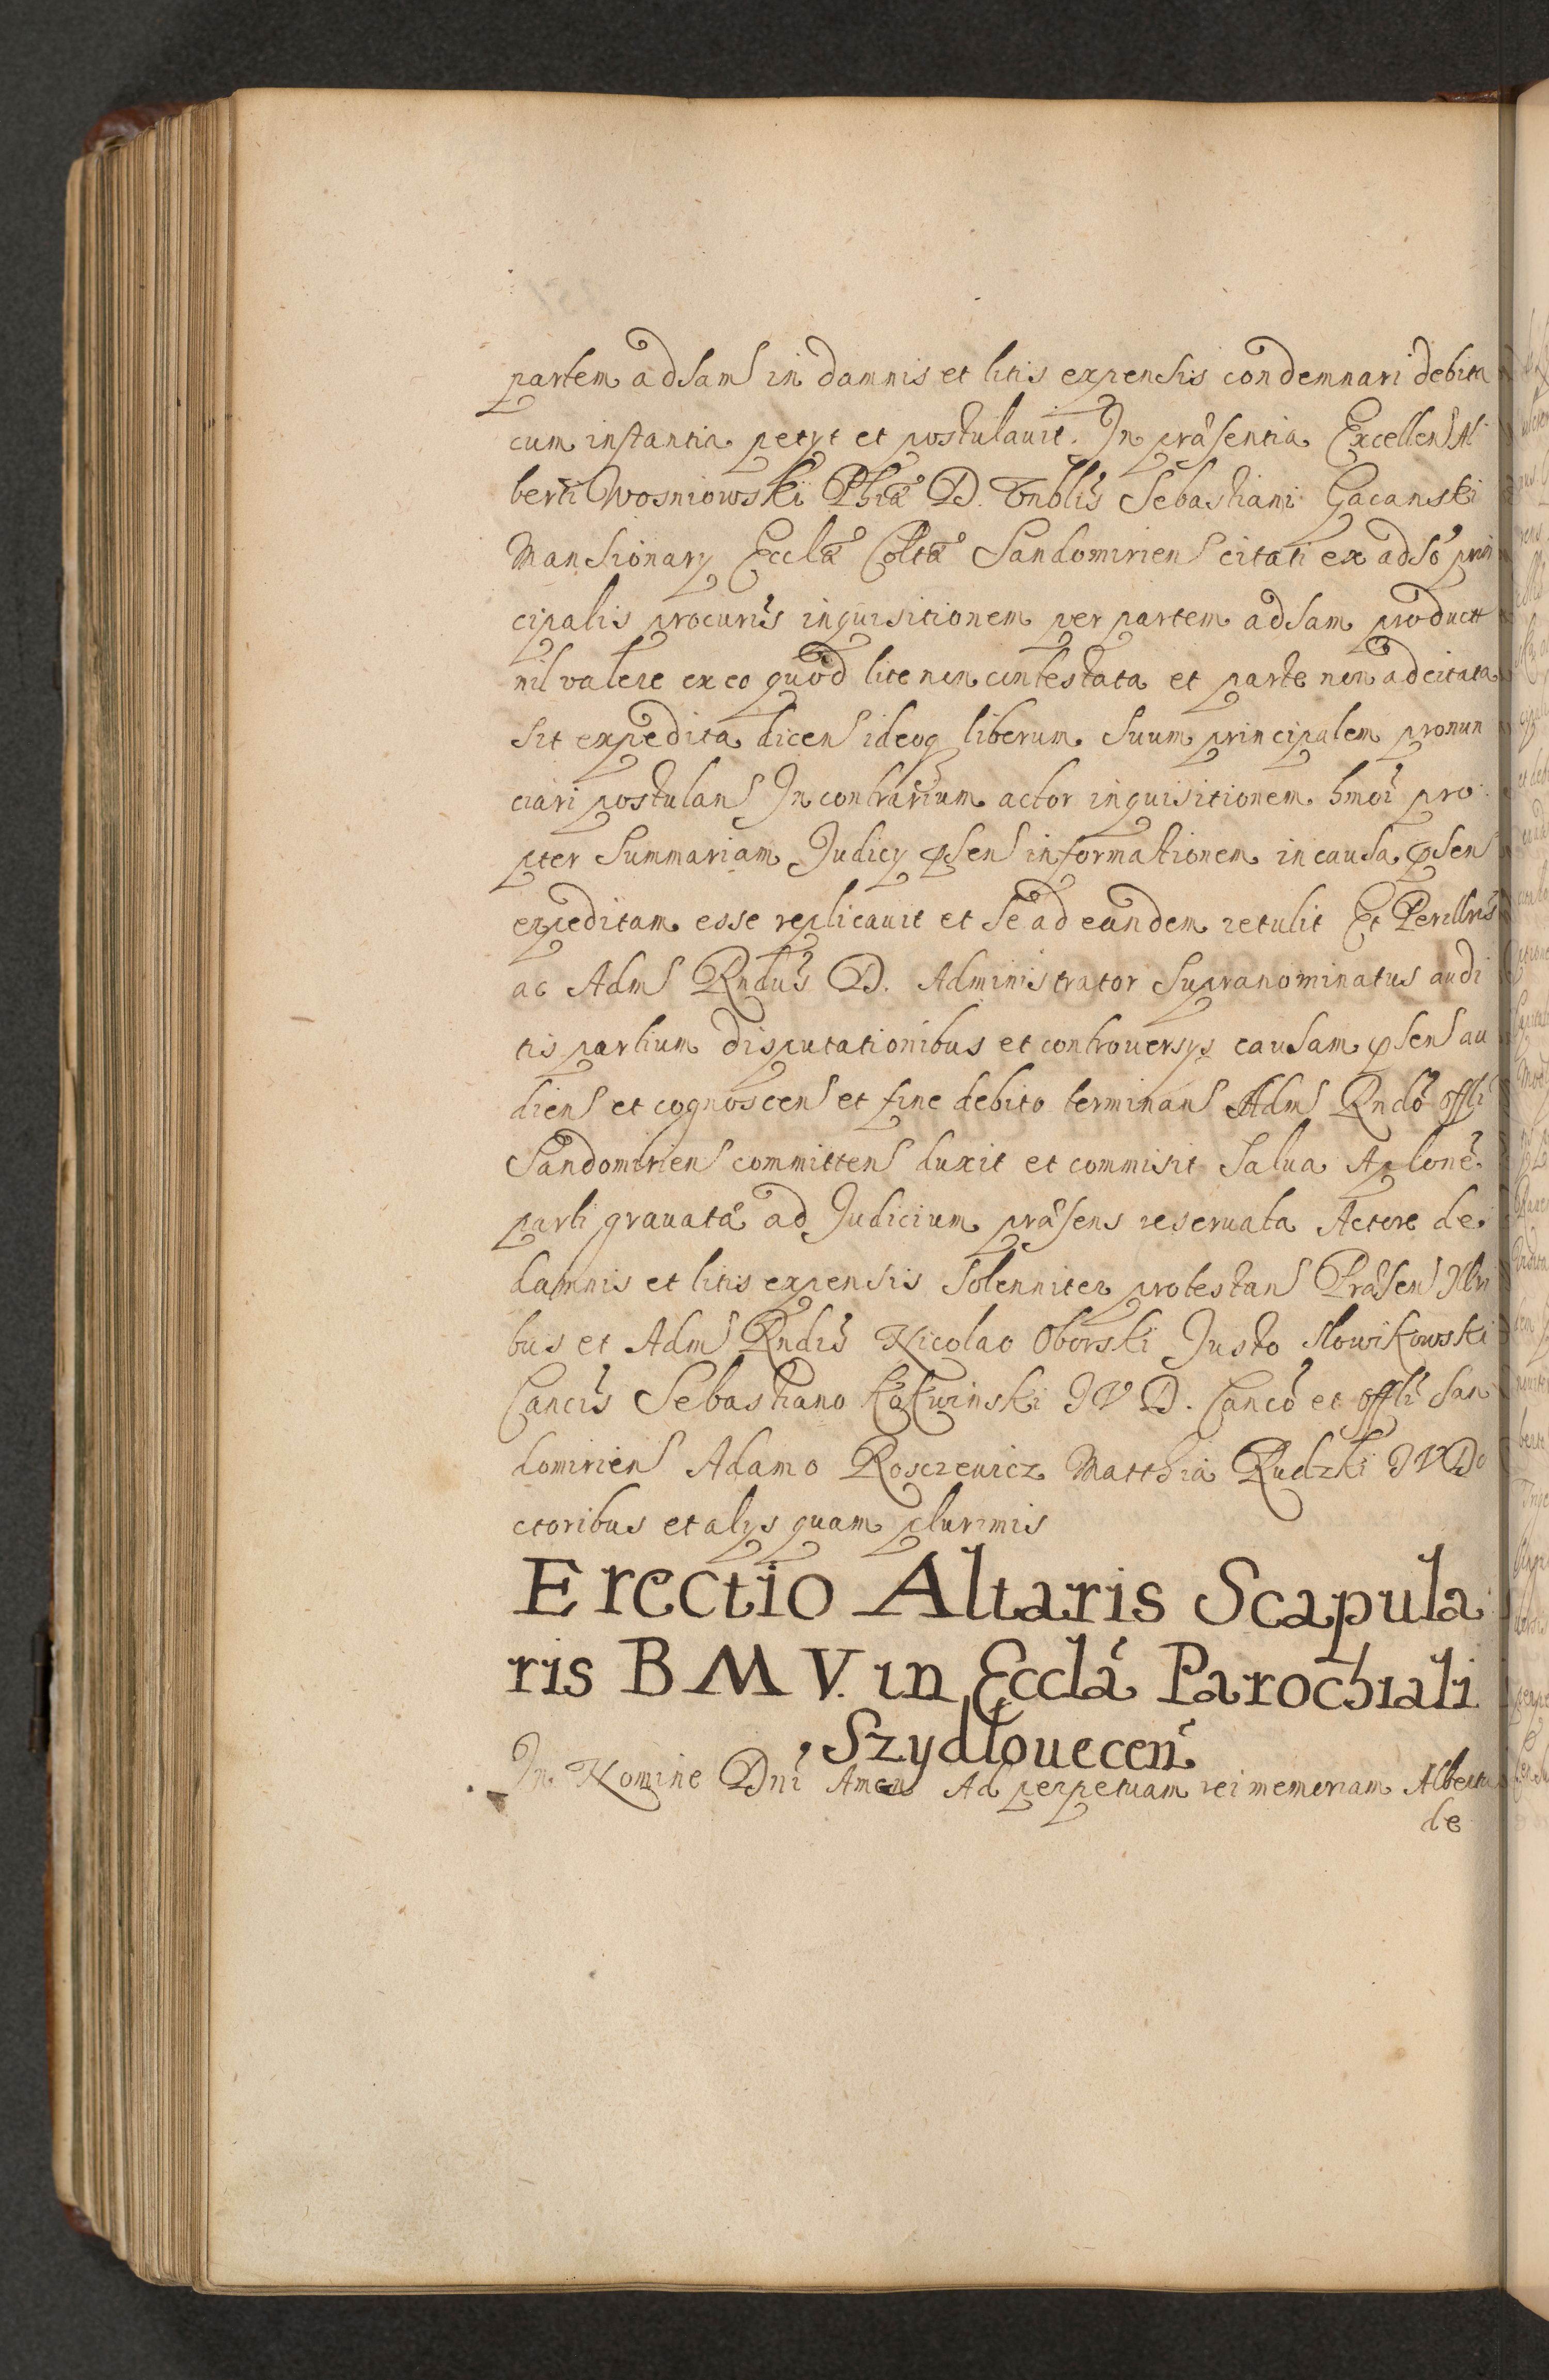 partem adsam in damnis et litis expensis condemnari debita
cum instantia petyt et postulauit. In præsentia Excellen Al
berti Wosniowski Phiæ D. Vnblis Sebastiani Gacanski
Mansionary Ecclæ Coltæ Sandomirien citati ex adso prin
cipalis procuris inquisitionem per partem adsam product
nil valere ex eo quod lite non contestata et parte non adcitata
sit expedita dicen ideoq liberum suum principalem pronun
ciari postulan In contrarium actor inquisitionem hmoi pro
pter summariam Judicy psen informationem in causa psen
expeditam esse replicauit et se ad eandem retulit Et Perillris
ac Adm Rndus D. Administrator supranominatus audi
tis partium disputationibus et controuersys causam psen au
dien et cognoscen et fine debito terminan Adm Rndo offli
Sandomirien committen duxit et commisit salua Aplone
parti grauatæ ad Judicium præsens reseruata Actore de
damnis et litis expensis solenniter protestan Præsen Illri
bus et Adm Rndis Nicolao Oborski Justo Slowikowski
Cancis Sebastiano Kokwinski J V D. Canco et offli San
domirien Adamo Rosczewicz Matthia Rudzki J V Do
ctoribus et alys quam plurimis
Erectio Altaris Scapula
ris B M V. in Eccla Parochiali
Szydłouecen
In Nomine Dni Amen Ad perpetuam rei memoriam Albertus
de